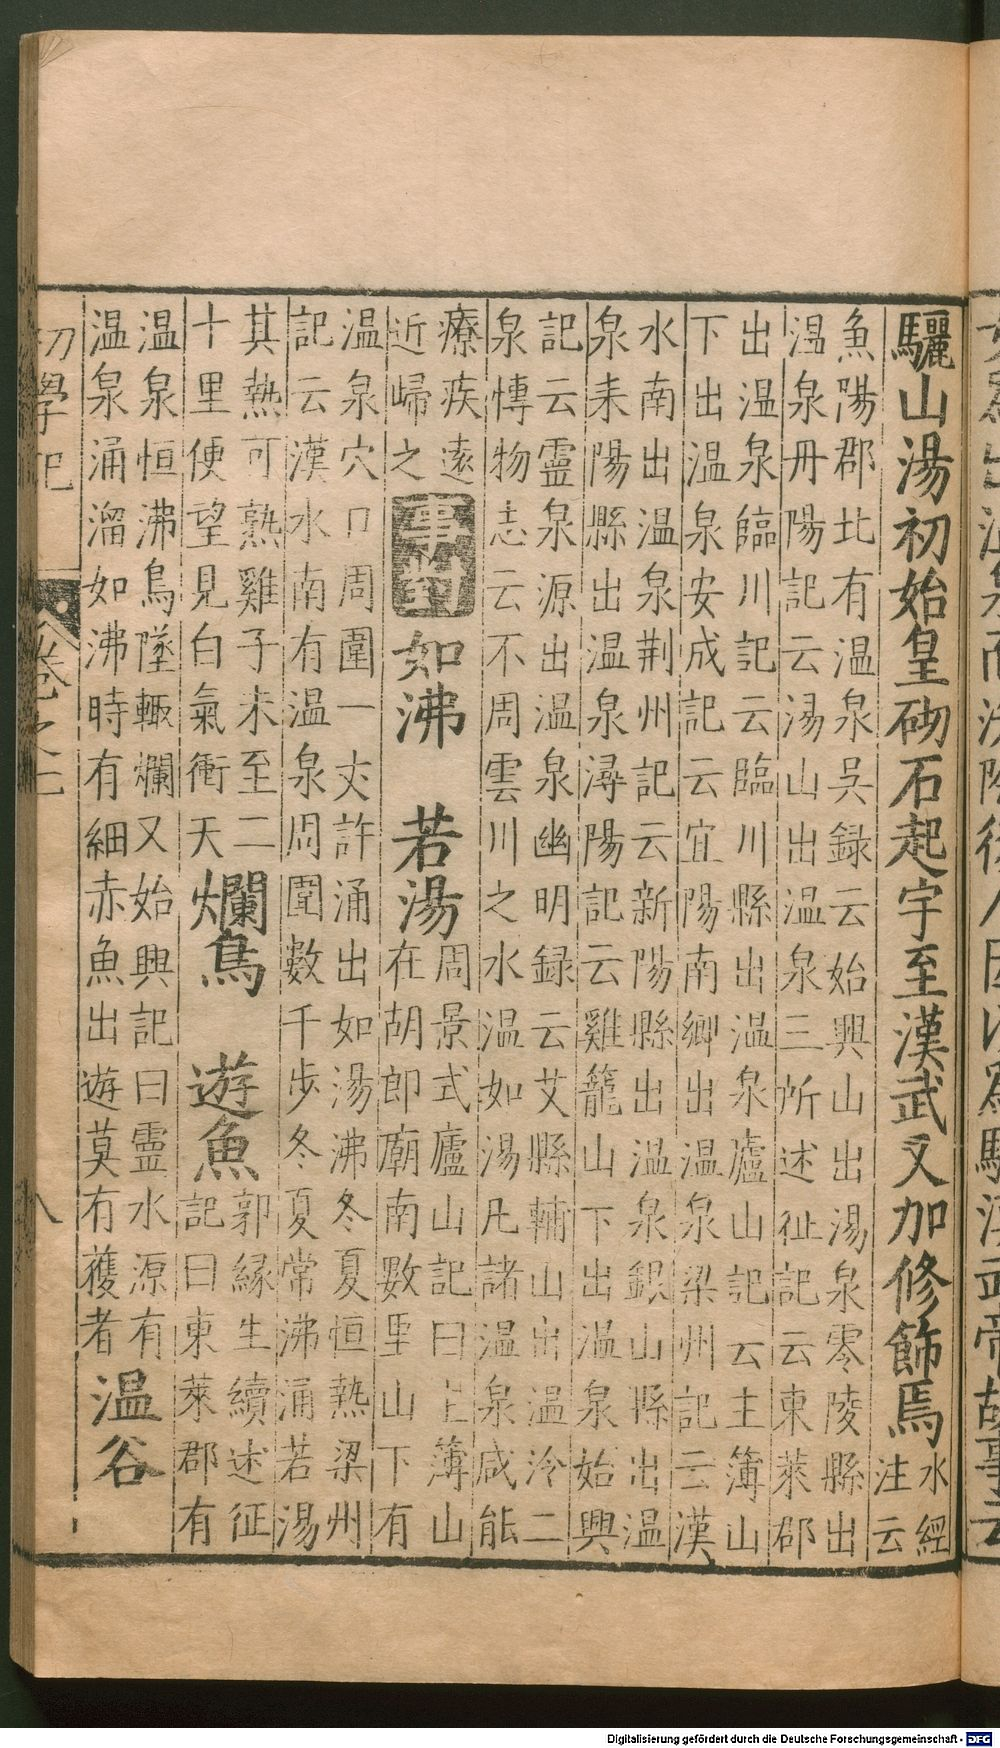 驪山湯初始皇砌石起宇至漢武又加修飾焉水經注云
魚陽郡北有温泉吳録云始興山出湯泉零陵縣出
温泉丹陽記云湯山出温泉三所述征記云東萊郡
出温泉臨川記云臨川縣出温泉廬山記云主簿山
下出温泉安成記云宜陽南鄉出温泉梁州記云漢
水南出温泉荆州記云新陽縣出温泉銀山縣出温
泉耒陽縣出温泉潯陽記云雞籠山下出温泉始興
記云靈泉源出温泉幽明録云艾縣輔山出温冷二
泉愽物志云不周雲川之水温如湯凡諸温泉咸能
療疾遠
近歸之
事對
如沸 若湯
周景式廬山記曰上簿山
在胡郎廟南數里山下有
温泉穴口周圍一丈許涌出如湯沸冬夏恒熱梁州
記云漢水南有温泉周圍數千步冬夏常沸涌若湯
其熱可熟雞子未至二
十里便望見白氣衝天
爛鳥 遊魚
郭緣生續述征
記曰東萊郡有
温泉恒沸鳥墜輙爛又始興記曰靈水源有
温泉涌溜如沸時有細赤魚出遊莫有獲者
温谷
初學記 卷之七 八
Digitalisierung gefördert durch die Deutsche Forschungsgemeinschaft - DFG